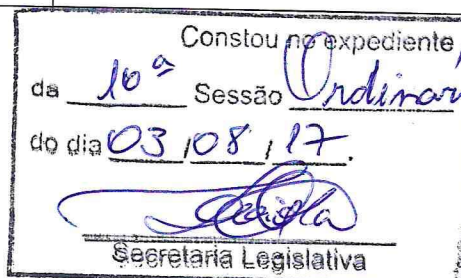 Constou no expediente
da 16ª Sessão Ordinári
do dia 03/08/17.
Secretaria Legislativa